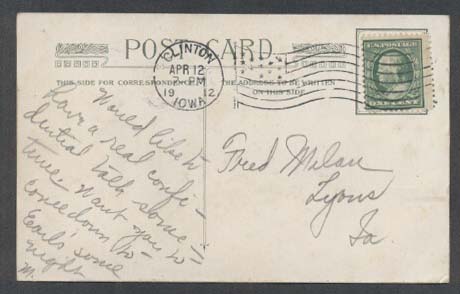 POST CARD
THIS SIDE FOR CORRESPONDENCE
THE ADDRESS TO BE WRITTEN
ON THIS SIDE
CLINTON
APR 12
2 PM
19 12
IOWA
U.S. POSTAGE
ONE CENT
Would like to
have a real confi-
dential talk some-
time. Want you to
come down to
Earl's some
night
M.
Fred Milan
Lyons
Ia